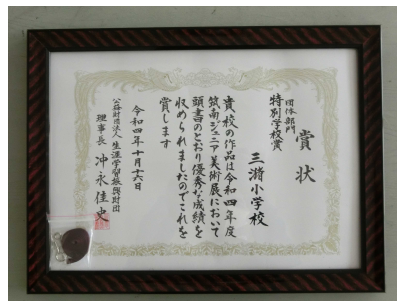 賞状
団体部門
特別学校賞
三潴小学校
貴校の作品は令和四年度
筑南ジュニア美術展において
頭書のとおり優秀な成績を
収められましたのでこれを
賞します
令和四年十月十六日
公益財団法人 生涯学習振興財団
理事長 沖永佳史